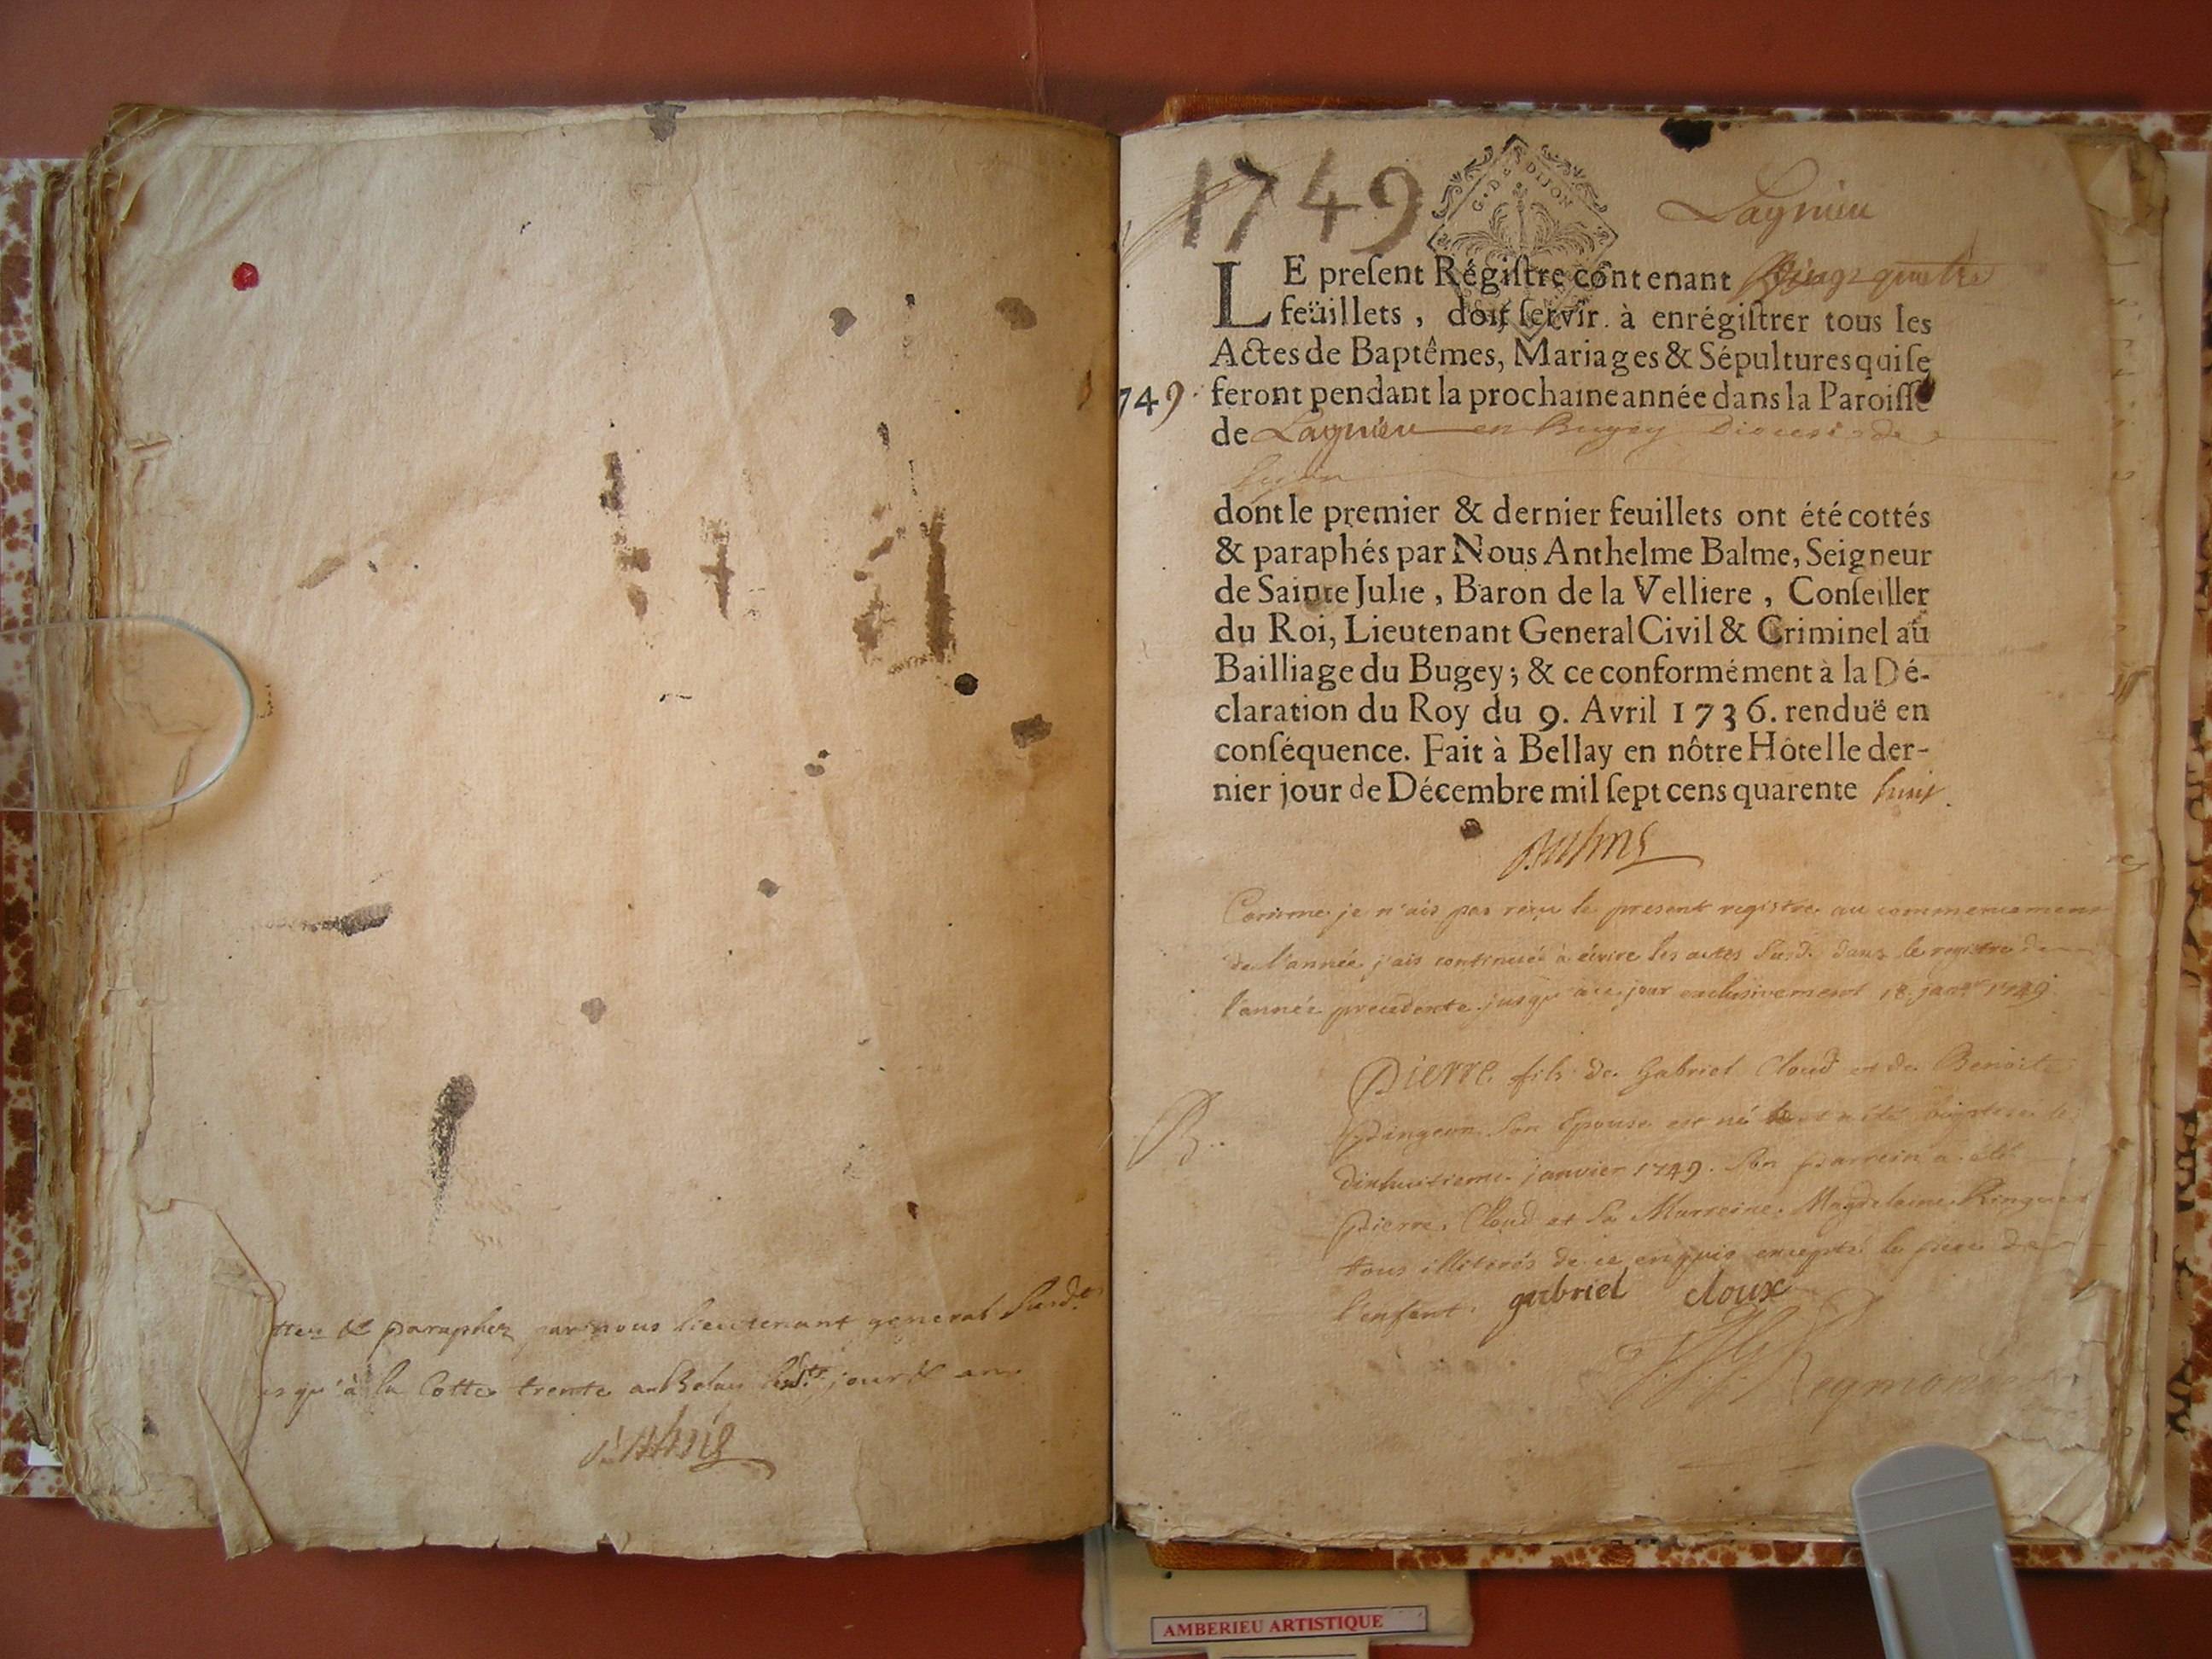 ttez & parapher par nous lieutenant general susd.
es qu'à la Cotte trente a Belay lesd. jour & an
Balme
1749
G. D. DIJON
Lagnieu
LE preſent Régiſtre contenant Vingt quatre
feüillets, doit ſervir à enrégiſtrer tous les
Actes de Baptêmes, Mariages & Sépultures qui ſe
749. feront pendant la prochaine année dans la Paroiſſe
de Lagnieu en Bugey Diocese de
Lyon
dont le premier & dernier feuillets ont été cottés
& paraphés par Nous Anthelme Balme, Seigneur
de Sainte Julie, Baron de la Velliere, Conſeiller
du Roi, Lieutenant General Civil & Criminel au
Bailliage du Bugey; & ce conformément à la Dé-
claration du Roy du 9. Avril 1736. renduë en
conſéquence. Fait à Bellay en nôtre Hôtel le der-
nier jour de Décembre mil ſept cens quarente huit.
Balme
Comme je n'ais pas reçu le present registre au commencement
de l'année j'ais continué à écrire les actes susd. dans le registre de
l'année precedente jusqu'à ce jour exclusivement 18. janv. 1749.
Pierre fils de Gabriel Cloud et de Benoite
son Epouse est né et a été baptisé le
B.
dixhuitieme janvier 1749. son parrein a été
pierre Cloud et sa Marreine Magdeleine Ringuet
tous illiterés de ce enquis excepté le pere de
l'enfant. gabriel cloux
Reymond
AMBERIEU ARTISTIQUE